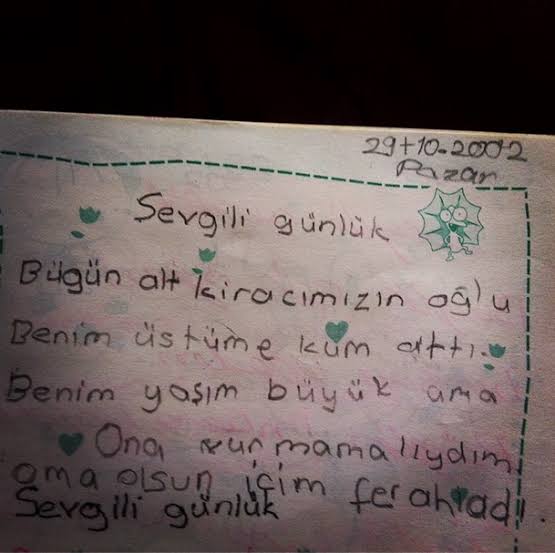 29+10-2002
Pazar
Sevgili günlük
Bügün alt kiracımızın oğlu
Benim üstüme kum attı.
Benim yaşım büyük ama
Ona vurmamalıydım
ama olsun içim ferahladı.
Sevgili günlük